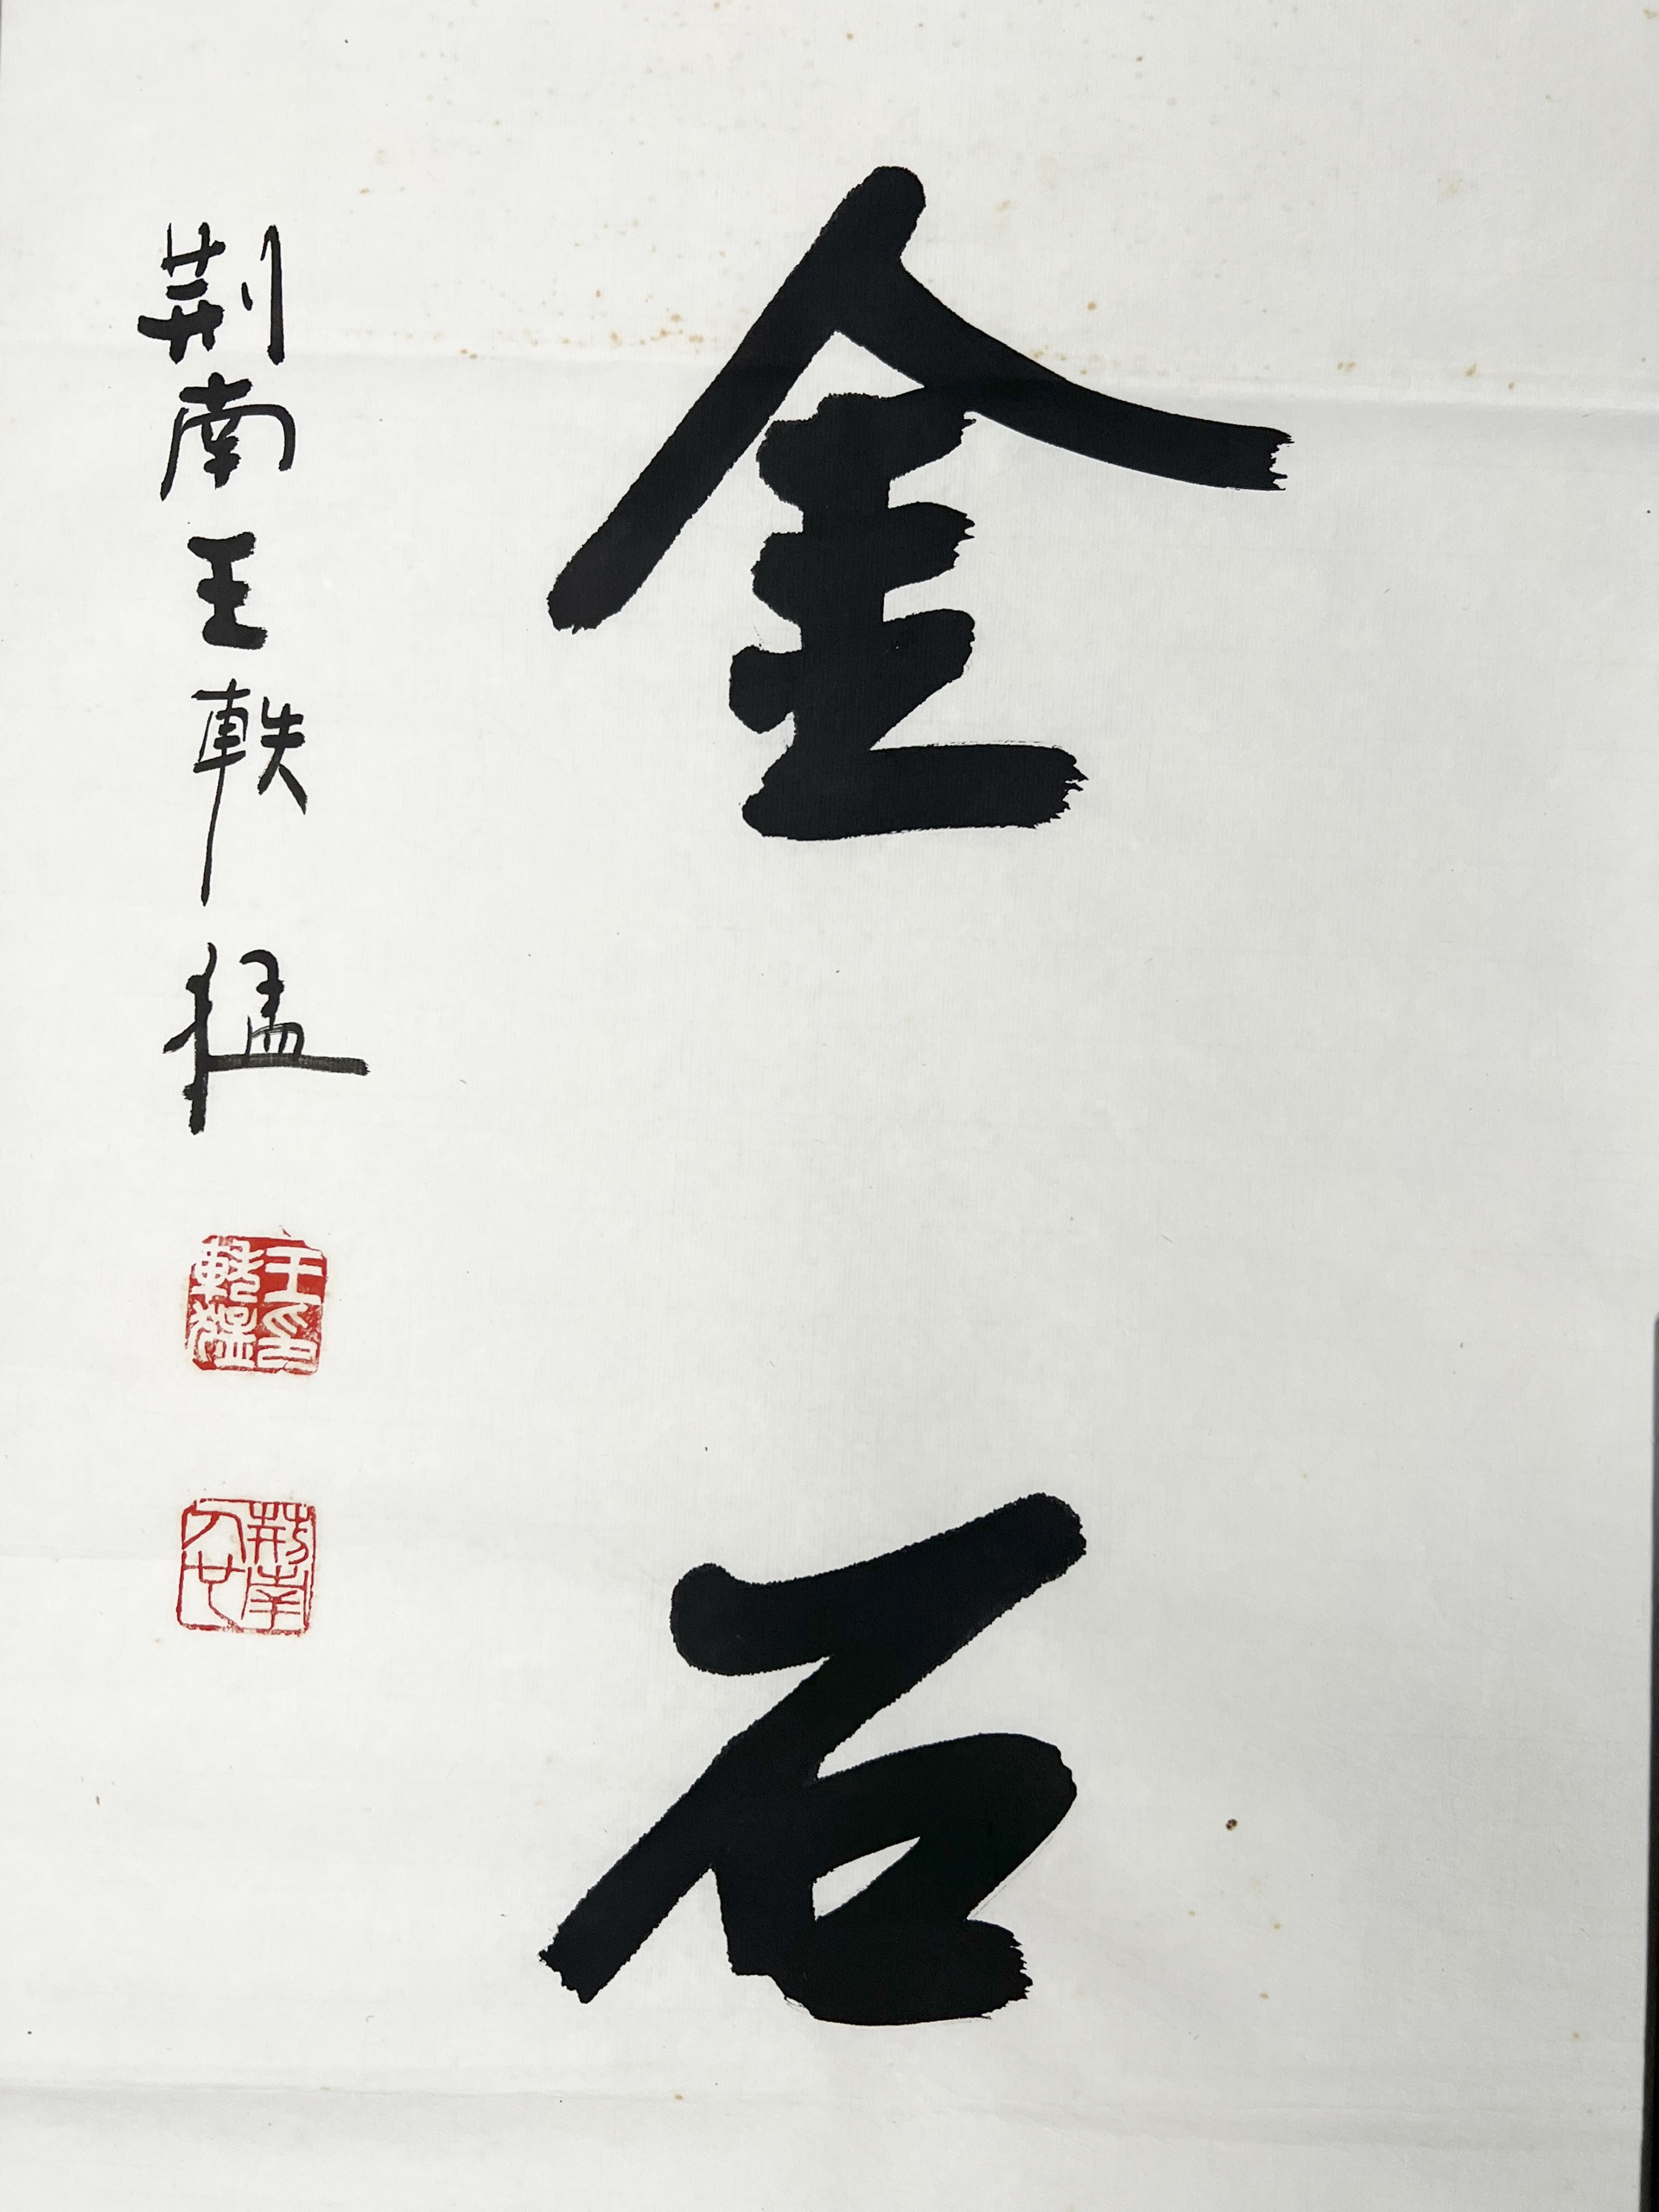 金石
荆南王軼猛
王印軼猛
荆南